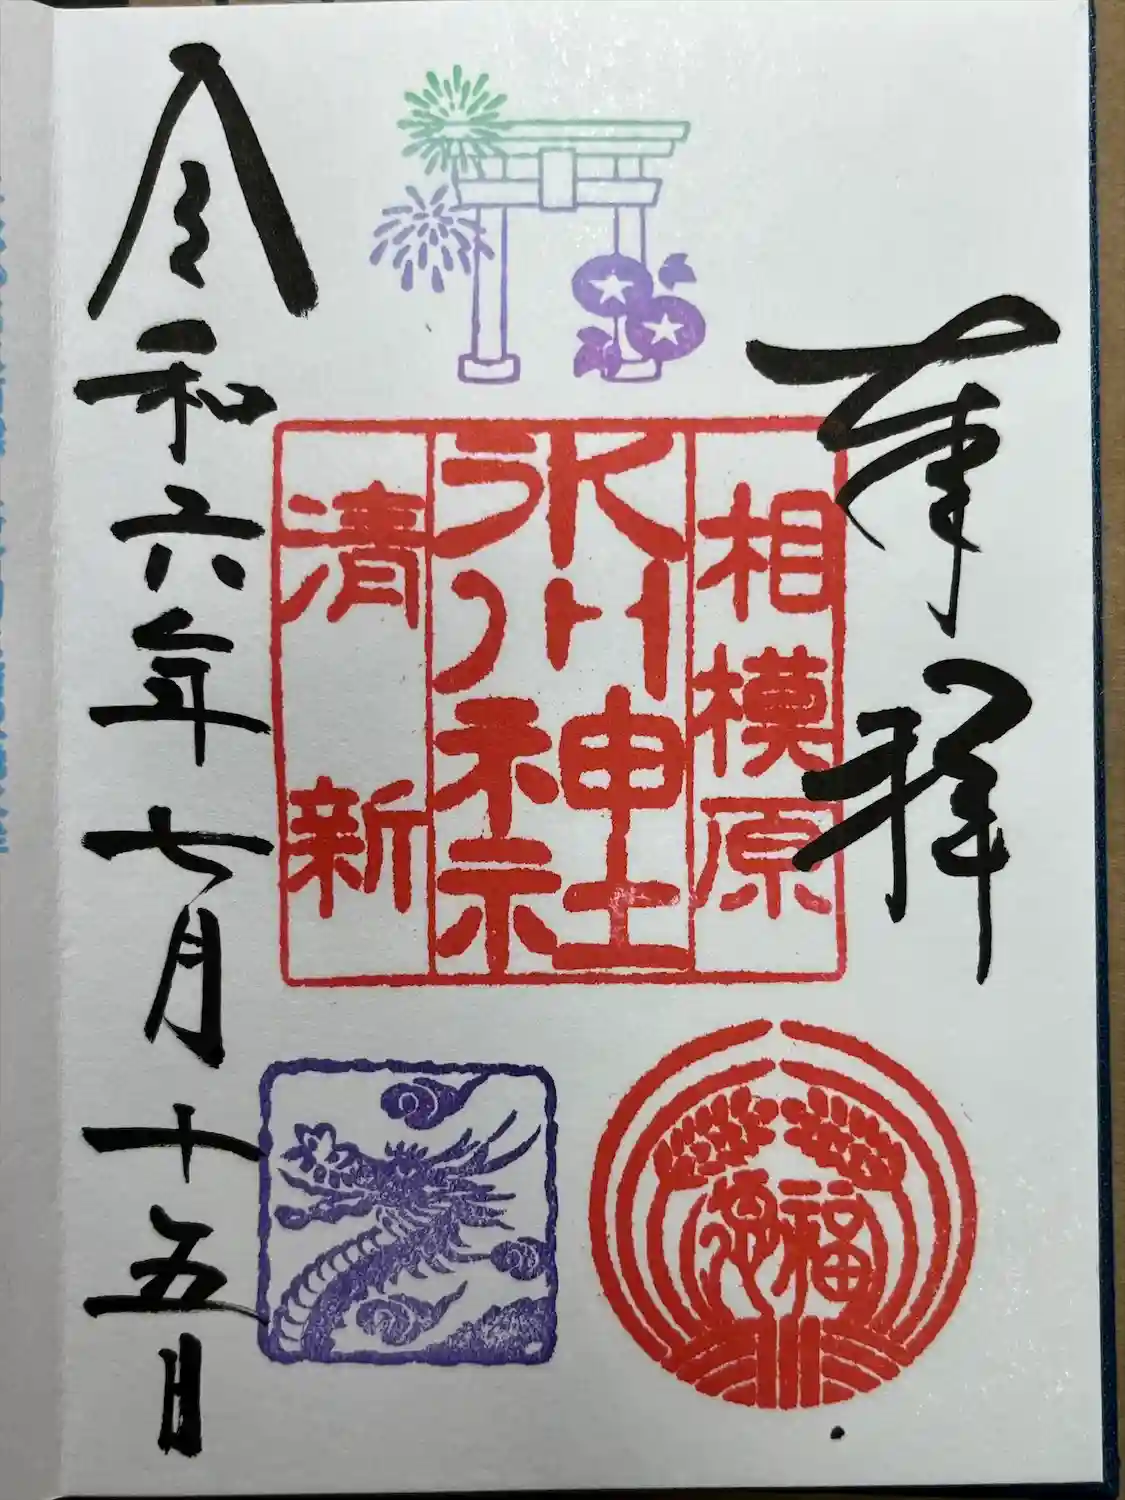 奉拝
相模原
氷川神社
清新
令和六年七月十五日